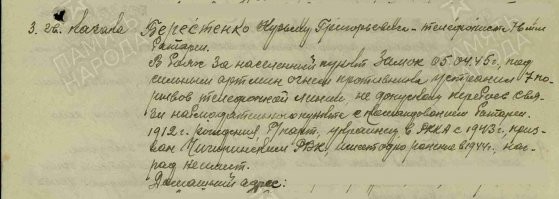 3. гв. казака Берестенко Кузьму Григорьевича - телефонист 7й
батареи.
В боях за населенный пункт Замок 05.04.45 г., под
сильным артмин огнем противника устранил 7 по-
рывов телефонной линии, не допускал перебоев свя-
зи наблюдательного пункта с командованием батареи.
1912 г. рождения, б/парт, украинец, в РККА с 1943 г., приз-
ван Чигиринским РВК, имеет одно ранение в 1944 г., наг-
рад не имеет.
Домашний адрес: